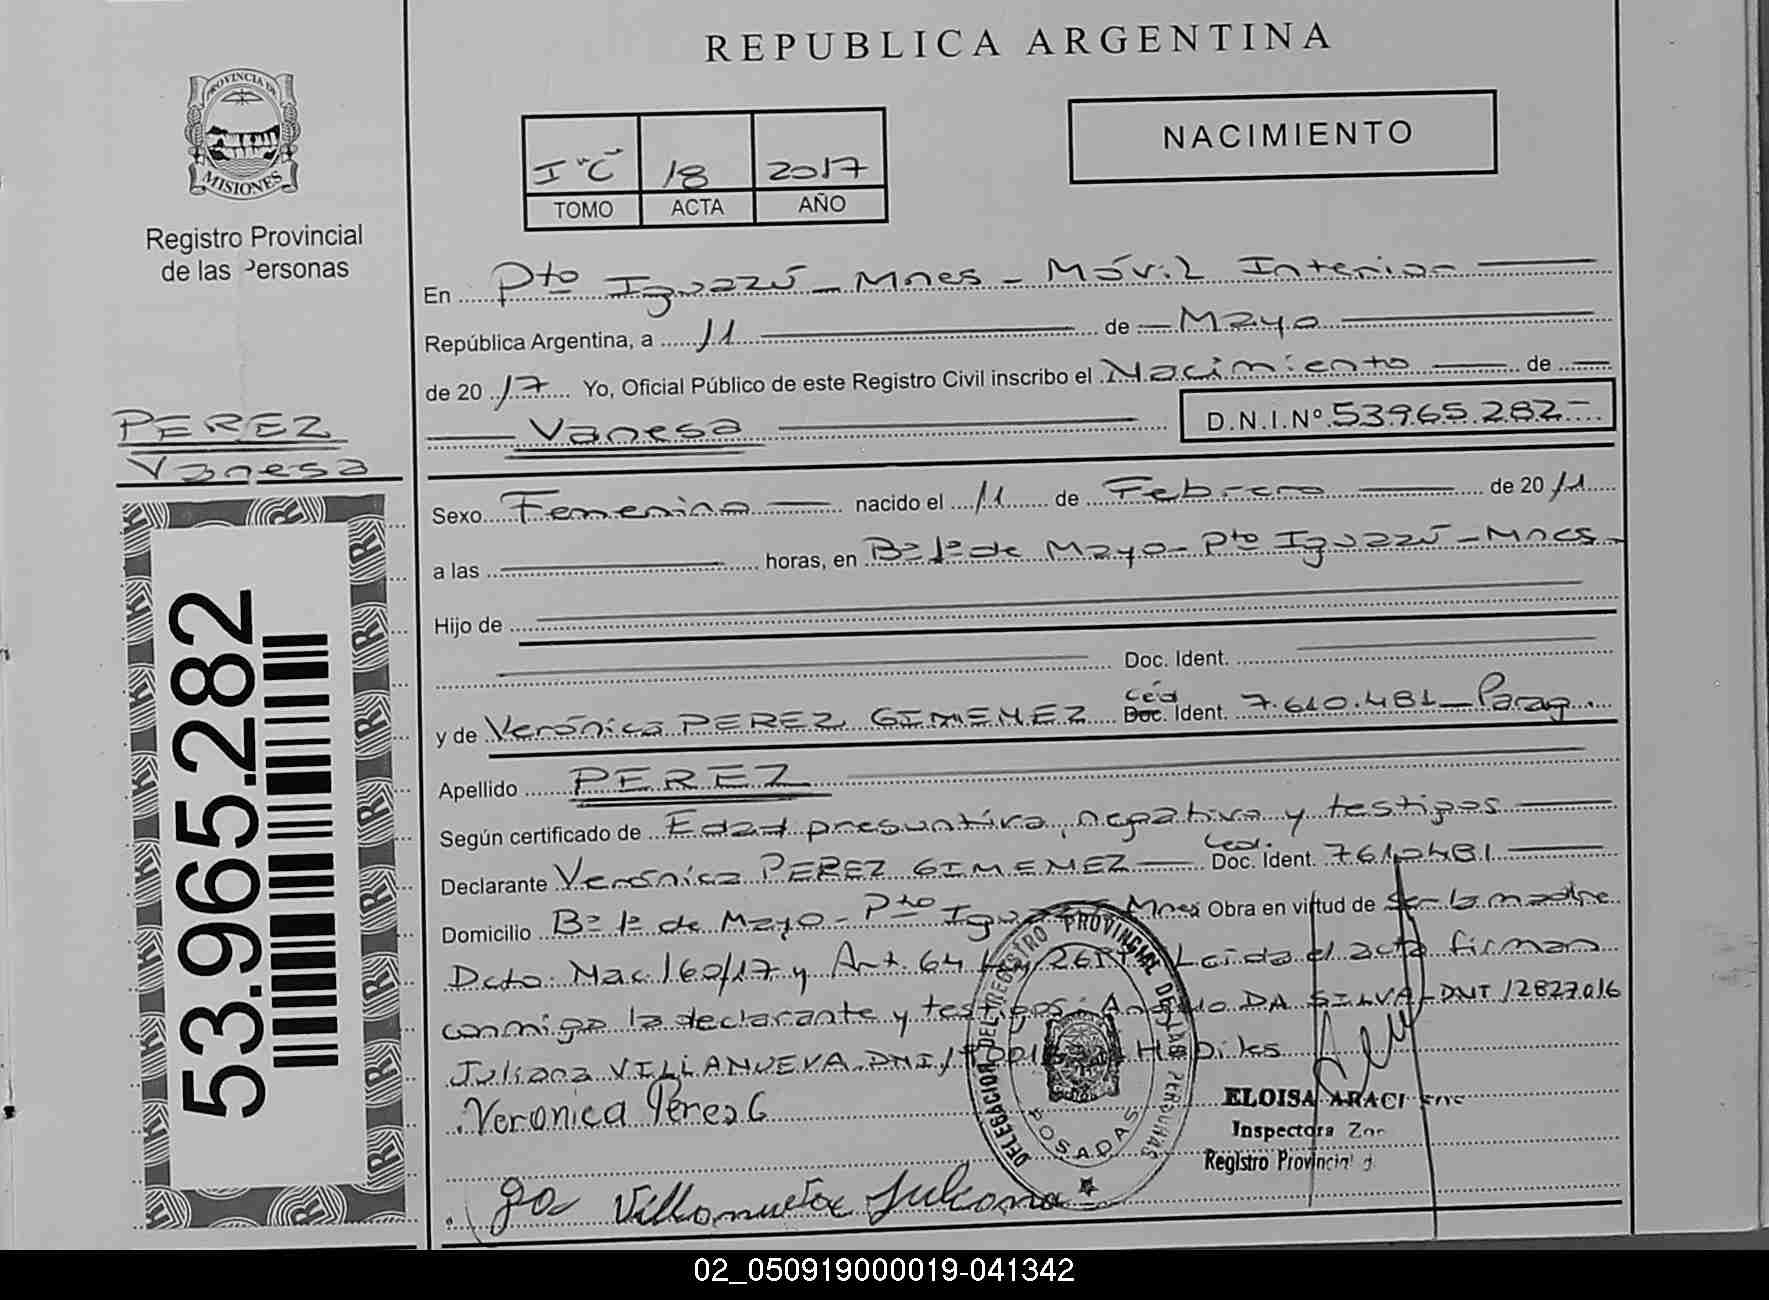 REPUBLICA ARGENTINA
PROVINCIA DE
MISIONES
Registro Provincial
de las Personas
I "C" 18 2017
TOMO ACTA AÑO
NACIMIENTO
En Pto Iguazú - Mnes - Móvil Interior
República Argentina, a 11 de Mayo
de 2017 Yo, Oficial Público de este Registro Civil inscribo el Nacimiento de
Vanesa D.N.I.Nº 53.965.282
PEREZ
Vanesa
53.965.282
Sexo Femenino nacido el 11 de Febrero de 2011
a las horas, en Bº 1º de Mayo - Pto Iguazú - Mnes
Hijo de
Doc. Ident.
y de Verónica PEREZ GIMENEZ Céd Doc. Ident. 7.610.481 - Parag.
Apellido PEREZ
Según certificado de Edad presuntiva, negativa y testigos
Declarante Verónica PEREZ GIMENEZ Ced. Doc. Ident. 7610481
Domicilio Bº 1º de Mayo - Pto Mnes Obra en virtud de ser la madre
Dcto. Nac 160/17 y Art. 64 Leida el acta firman
conmigo la declarante y testigos: DA SILVA - DNI 12827016
Juliana VILLANUEVA DNI
Veronica Pérez G
Villanueva Juliana
DELEGACION DEL REGISTRO PROVINCIAL DE LAS PERSONAS
POSADAS
ELOISA ARACI
Inspectora
Registro Provincial
02_050919000019-041342